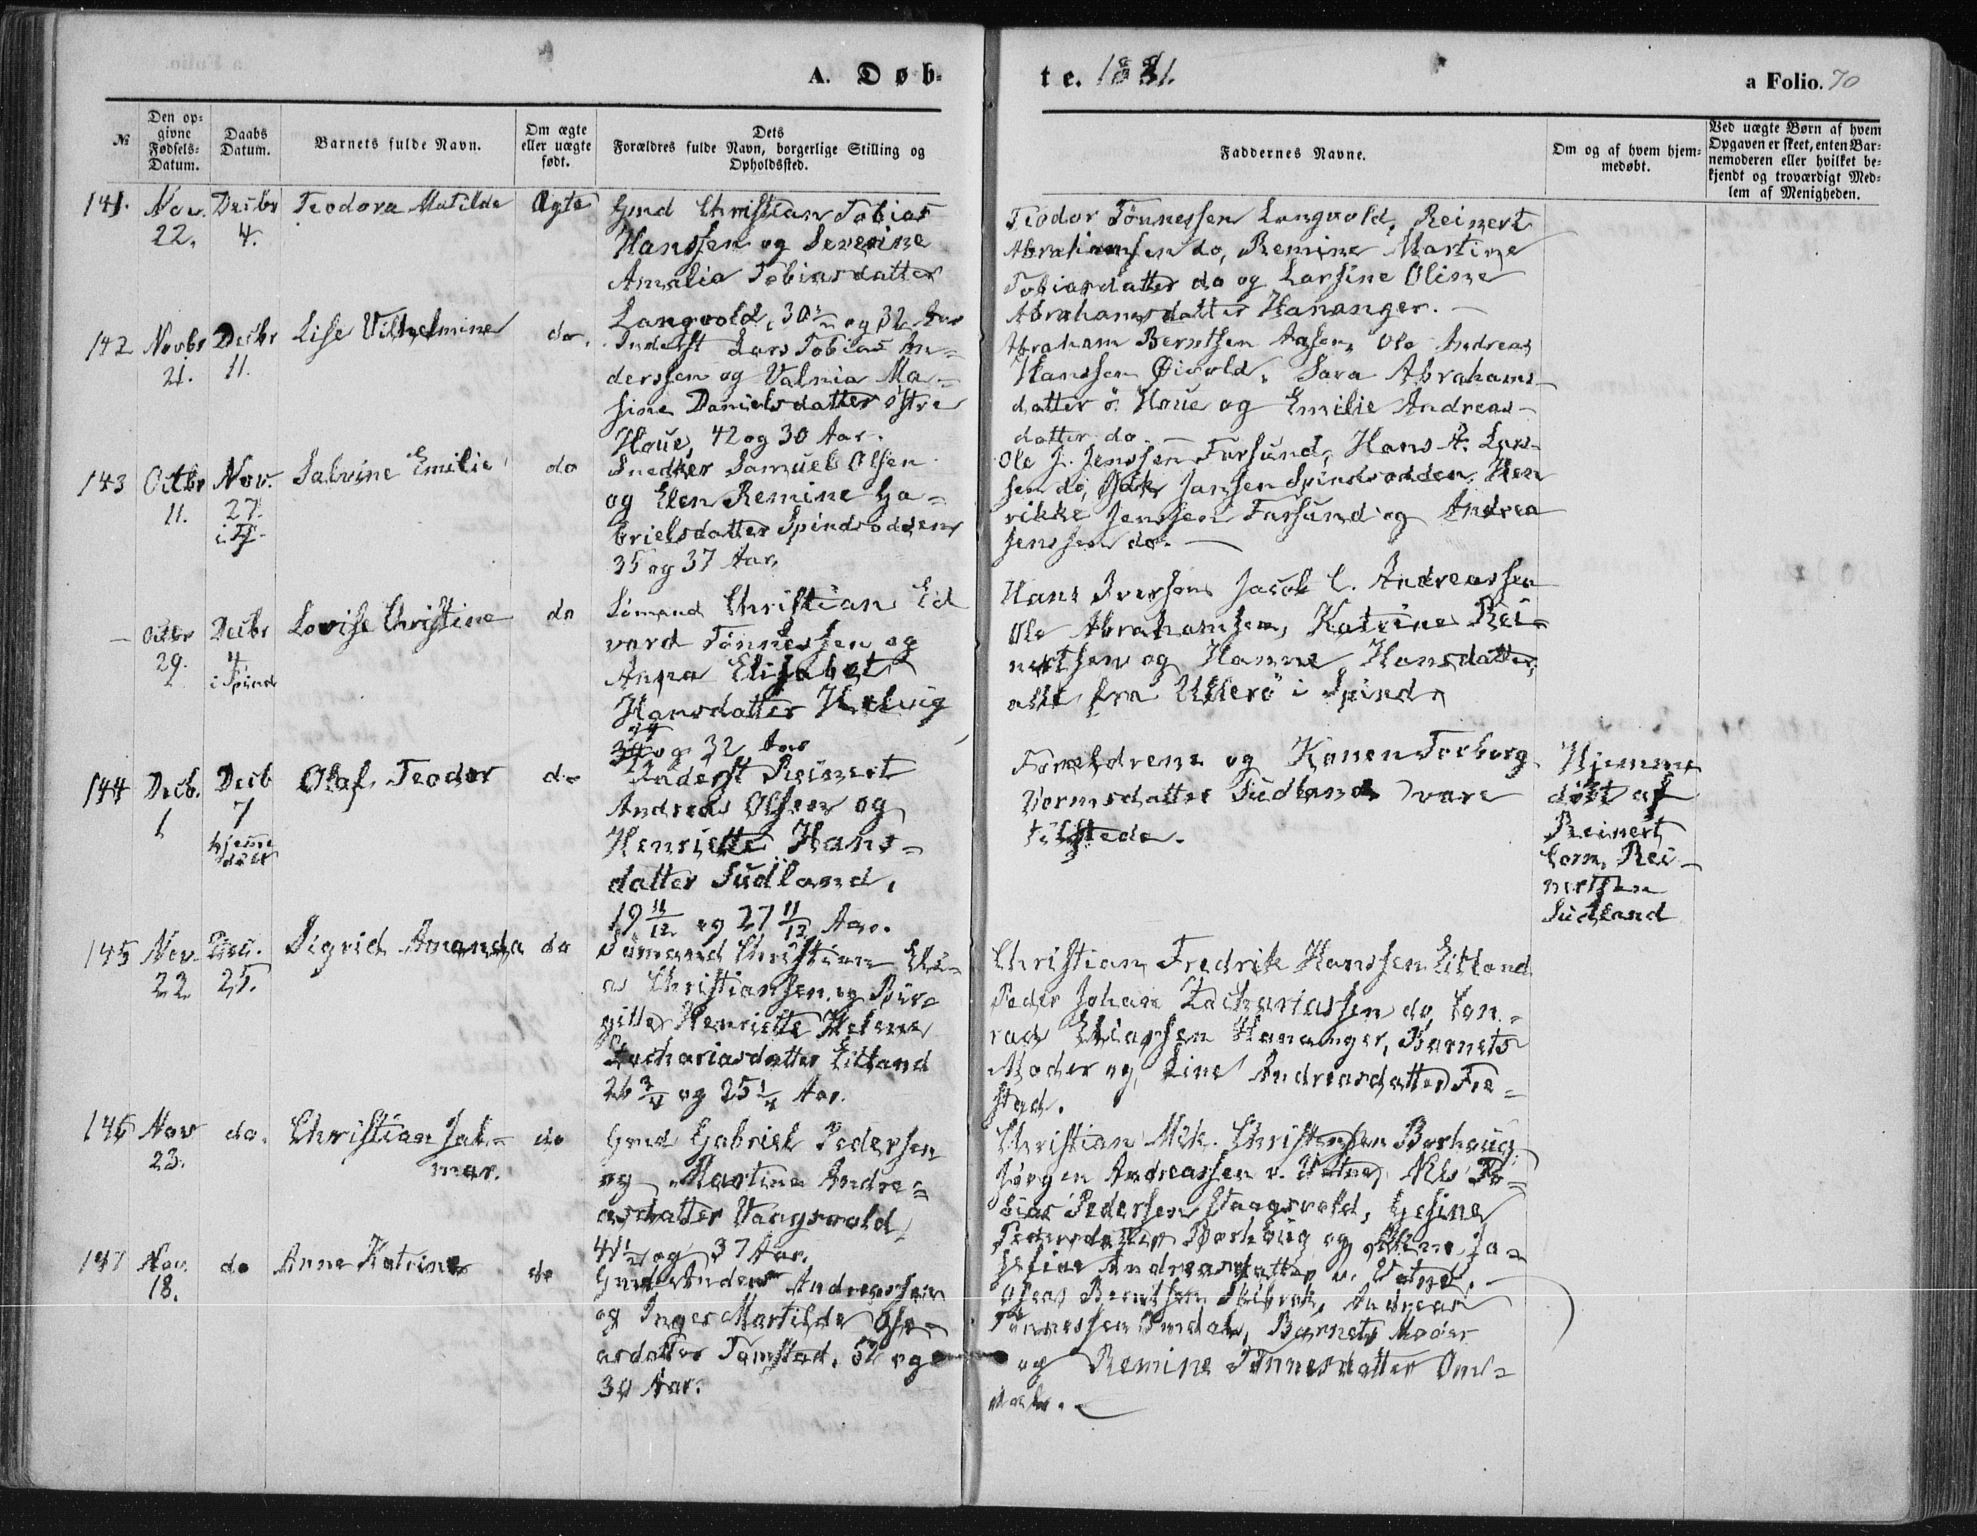 A. Døb-
te. 1881.
a Folio. 70
№
Den opgivne Fødsels-Datum.
Daabs Datum.
Barnets fulde Navn.
Om ægte eller uægte født.
Dets Forældres fulde Navn, borgerlige Stilling og Opholdssted.
Faddernes Navne.
Om og af hvem hjemmedøbt.
Ved uægte Børn af hvem Opgaven er skeet, enten Barnemoderen eller hvilket bekjendt og troværdigt Medlem af Menigheden.
141. Nov. 22. Decbr 4. Teodora Matilde Ægte
Gmd Christian Tobias
Hanssen og Severine
Amalia Tobiasdatter
Langvold, 30½ og 32 Aar
Teodor Tönnessen Langvold, Reinert
Abrahamsen do, Remine Martine
Tobiasdatter do og Larsine Oline
Abrahamsdatter Hananger. -
142 Novbr 21. Decbr 11. Lise Vilhelmine do.
Inderst Lars Tobias An-
derssen og Valnia Ma-
sine Danielsdatter østre
Houe, 42 og 30 Aar.
Abraham Berntsen Aasen, Ole Andreas
Hanssen Öivold, Sara Abrahams-
datter ö. Houe og Emilie Andreas-
datter do.
143 Octbr 11. Nov. 27. Salvine Emilie do
Snedker Samuel Olsen
og Elen Remine Ga-
brielsdatter Spindsodden
35 og 37 Aar.
Ole J. Jenssen Farsund, Hans A. Lars-
sen do, Jansen Spindsodden, Hen
rikke Jenssen Farsund og Andrea
Jenssen do. -
- Octbr 29. Decbr 4 i Spind Lovise Christine do
Sömand Christian Ed
vard Tönnessen og
Anna Elisabet
Hansdatter Helvig
34 og 32 Aar
Hans Iversen, Jacob C. Andreassen
Ole Abrahamsen, Katrine Rei-
nertsen og Hanne Hansdatter,
alle fra Ullerö i Spind
144 Decb. 1 Decb 7 hjemme döbt Olaf Teodor do
Inderst Reinert
Andreas Olsen og
Henriette Hans-
datter Sudland,
19 11/12 og 27 11/12 Aar.
Forældrene og Konen Torborg
Vormsdatter Sudland vare
tilstede.
Hjemme
döbt af
Reinert
Corn. Rei-
nertsen
Sudland
145 Nov. 22 Dec. 25. Sigrid Amanda do
Sömand Christian Eli-
as Christiansen og Bir-
gitte Henriette Helene
Zachariasdatter Eitland
26 3/4 og 25 1/4 Aar.
Christian Fredrik Hanssen Eitland
Peder Johan Zachariassen do, Con-
rad Eliassen Hananger, Barnets
Moder og Line Andreasdatter Tre-
stad.
146 Nov 23. do. Christian Jal-
mar. do
Gmd Gabriel Pedersen
og Martine Andre-
asdatter Vaagsvold,
41½ og 37 Aar.
Christian Mik. Christensen Borhaug
Jörgen Andreassen v. Vatne, Nils To-
bias Pedersen Vaagsvold, Gesine
Pedersdatter Borhaug og Ja-
sefine Andreasdatter v. Vatne. -
147 Nov. 18. do Anne Katrine do
Gmd Anders Andreassen
og Inger Martilde Ose-
asdatter Tomstad, 52 og
30 Aar.
Oseas Berntsen Skibrok, Andreas
Tönnessen Omdal, Barnets Moder
og Remine Tönnesdatter Om-
dal. -